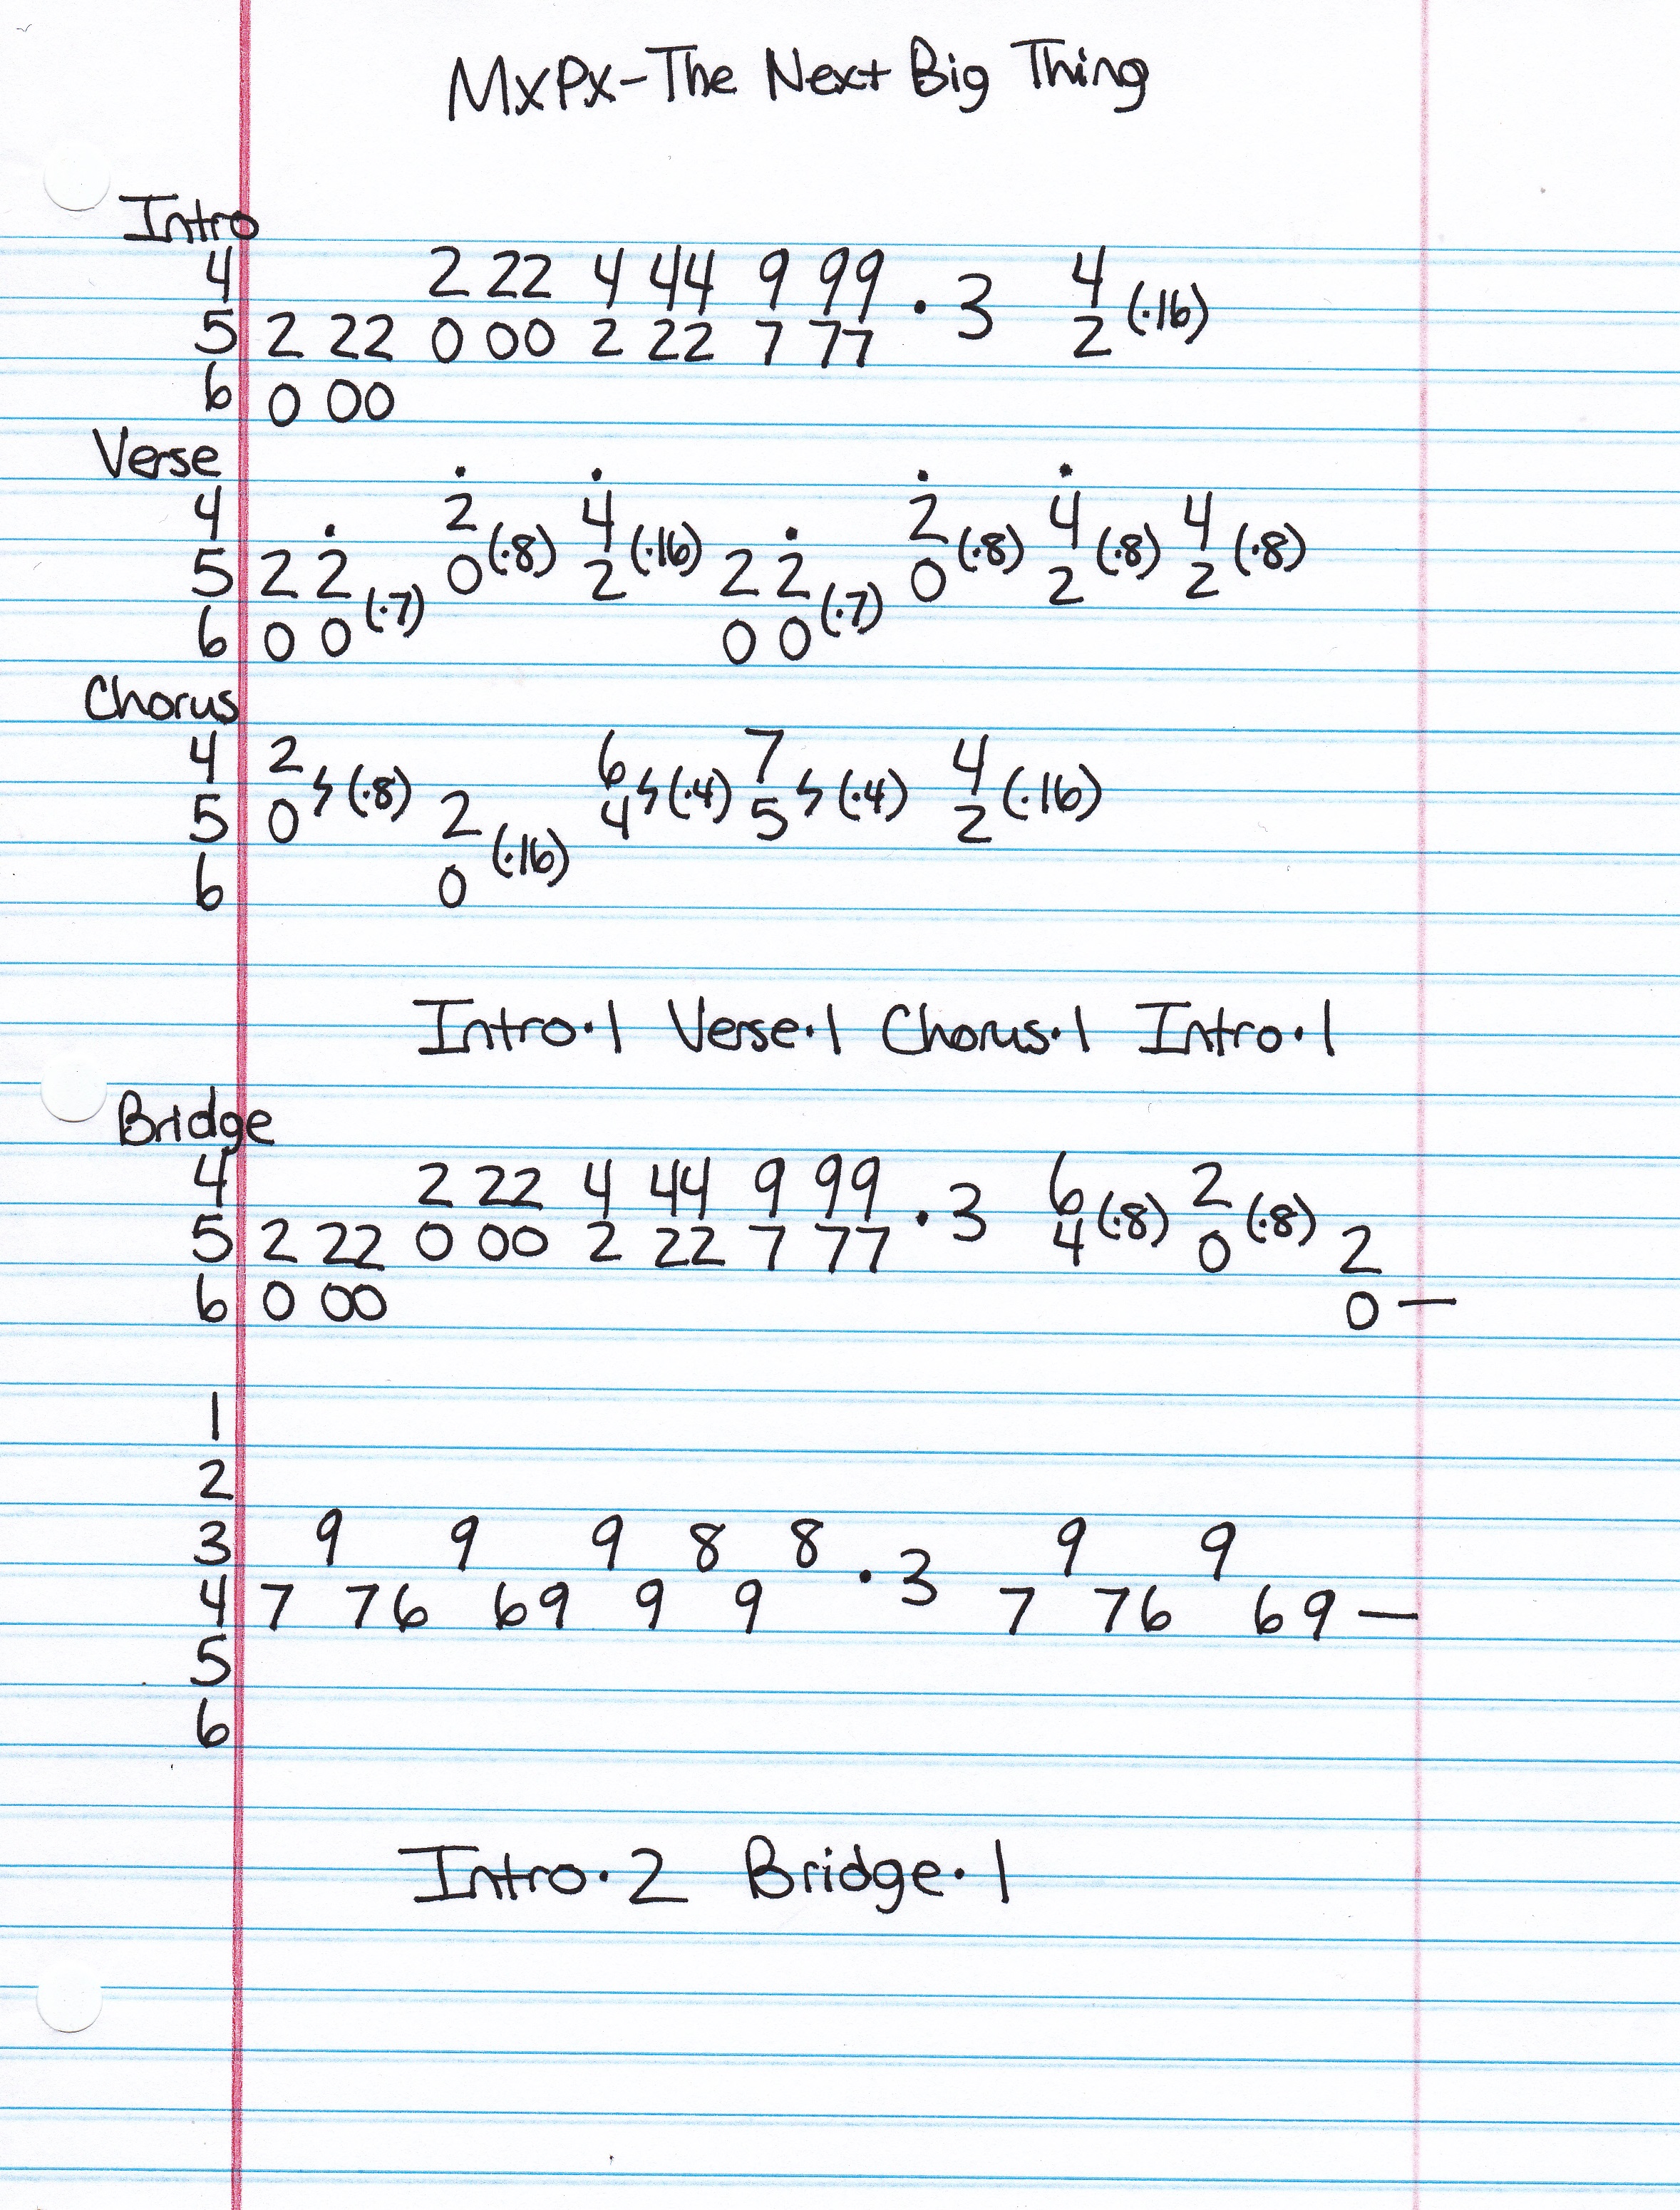 MxPx-The Next Big Thing
Intro
4 2 22 4 44 9 99 · 3 4 (·16)
5 2 22 0 00 2 22 7 77 2
6 0 00
Verse
4 2 (·8) 4 (·16) 2 (·8) 4 (·8) 4 (·8)
5 2 2 0 2 2 2 0 2 2
6 0 0 (·7) 0 0 (·7)
Chorus
4 2 ϟ (·8) 6 ϟ (·4) 7 ϟ (·4) 4 (·16)
5 0 2 4 5 2
6 0 (·16)
Intro·1 Verse·1 Chorus·1 Intro·1
Bridge
4 2 22 4 44 9 99 · 3 6 (·8) 2 (·8)
5 2 22 0 00 2 22 7 77 4 0 2
6 0 00 0 —
1
2
3 9 9 9 8 8 · 3 9 9
4 7 76 69 9 9 7 76 69 —
5
6
Intro·2 Bridge·1